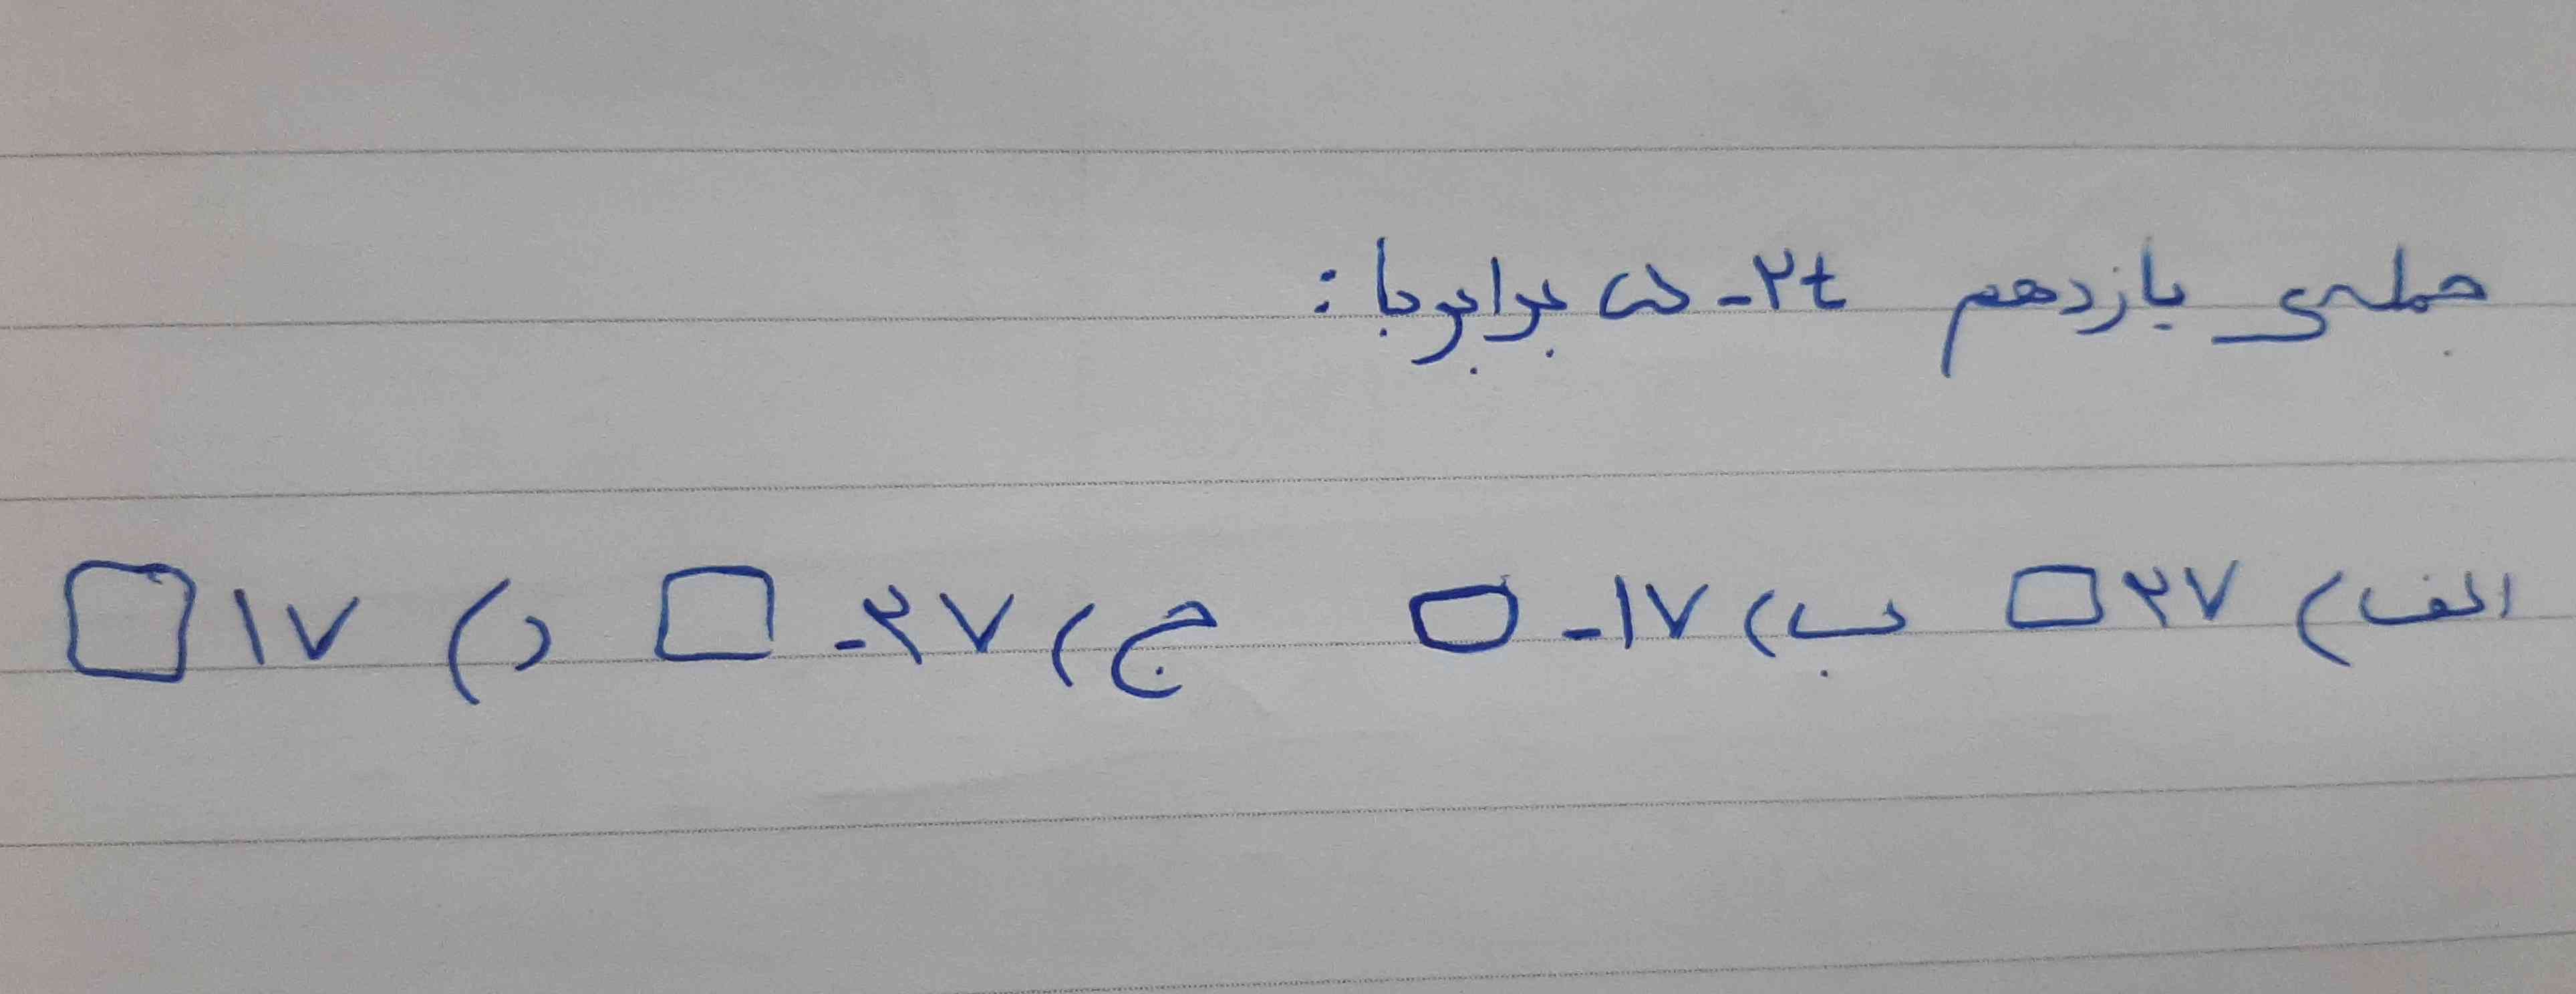 جمله‌ی یازدهم ۵-۲t برابر با :
الف) ۲۷ □ ب) -۱۷ □ ج) -۲۷ □ د) ۱۷ □